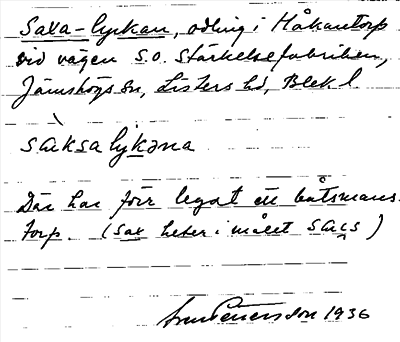 Saxa-lyckan, odling i Håkantorp
vid vägen S.O. Stärkelsefabriken,
Jämshögs sn, Listers hd, Blek. l.
sàksalykəna
Där har förr legat en båtsmans-
torp. (Sax heter i målet sacs)
Petersson 1936